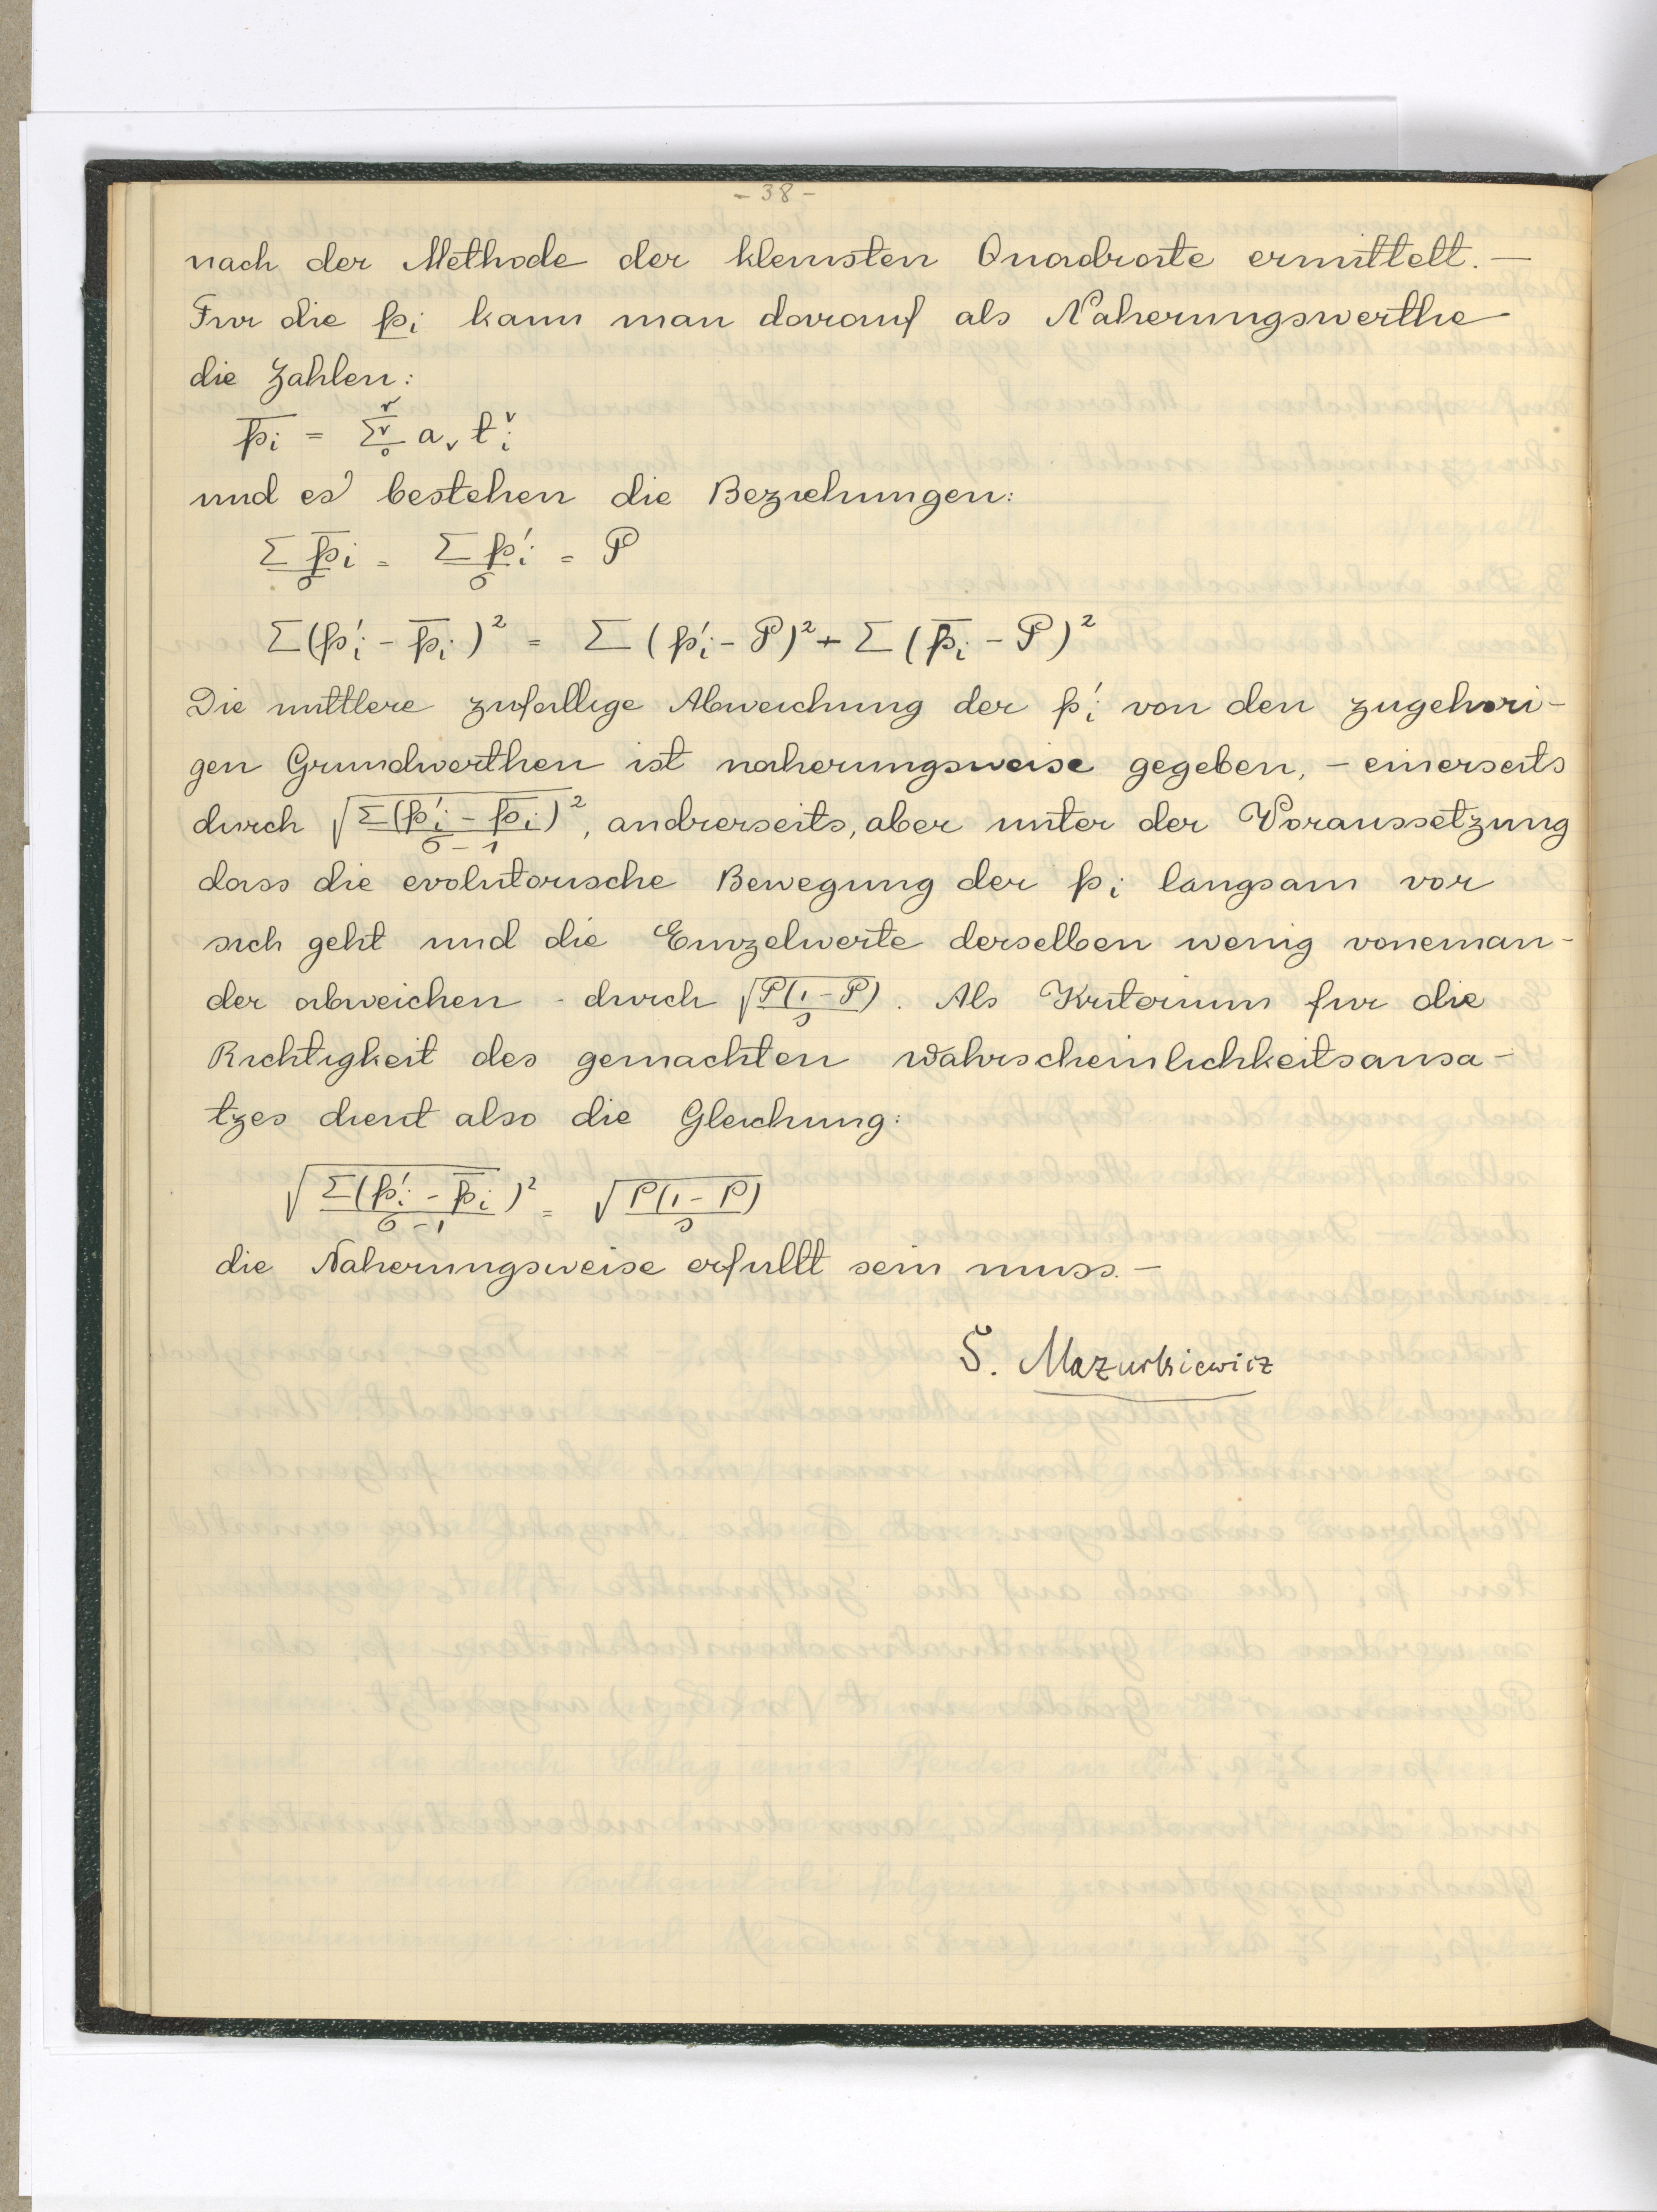 - 38 -
nach der Methode der kleinsten Quadrate ermittelt. —
Fur die p_i kann man darauf als Naherungswerthe
die Zahlen:
p̅_i = Σ_0^r a_ν t_i^ν
und es bestehen die Beziehungen:
Σ p̅_i / σ = Σ p'_i / σ = P
Σ(p'_i - p̅_i)² = Σ(p'_i - P)² + Σ(p̅_i - P)²
Die mittlere zufallige Abweichung der p'_i von den zugehori-
gen Grundwerthen ist naherungsweise gegeben, - einerseits
durch √(Σ(p'_i - p̅_i)² / σ - 1), andrerseits, aber unter der Voraussetzung
dass die evolutorische Bewegung der p_i langsam vor
sich geht und die Einzelwerte derselben wenig voneinan-
der abweichen - durch √(P(1 - P) / s). Als Kriterium fur die
Richtigkeit des gemachten Wahrscheinlichkeitsansa-
tzes dient also die Gleichung:
√(Σ(p'_i - p̅_i)² / σ - 1) = √(P(1 - P) / s)
die Naherungsweise erfullt sein muss. —
S. Mazurkiewicz